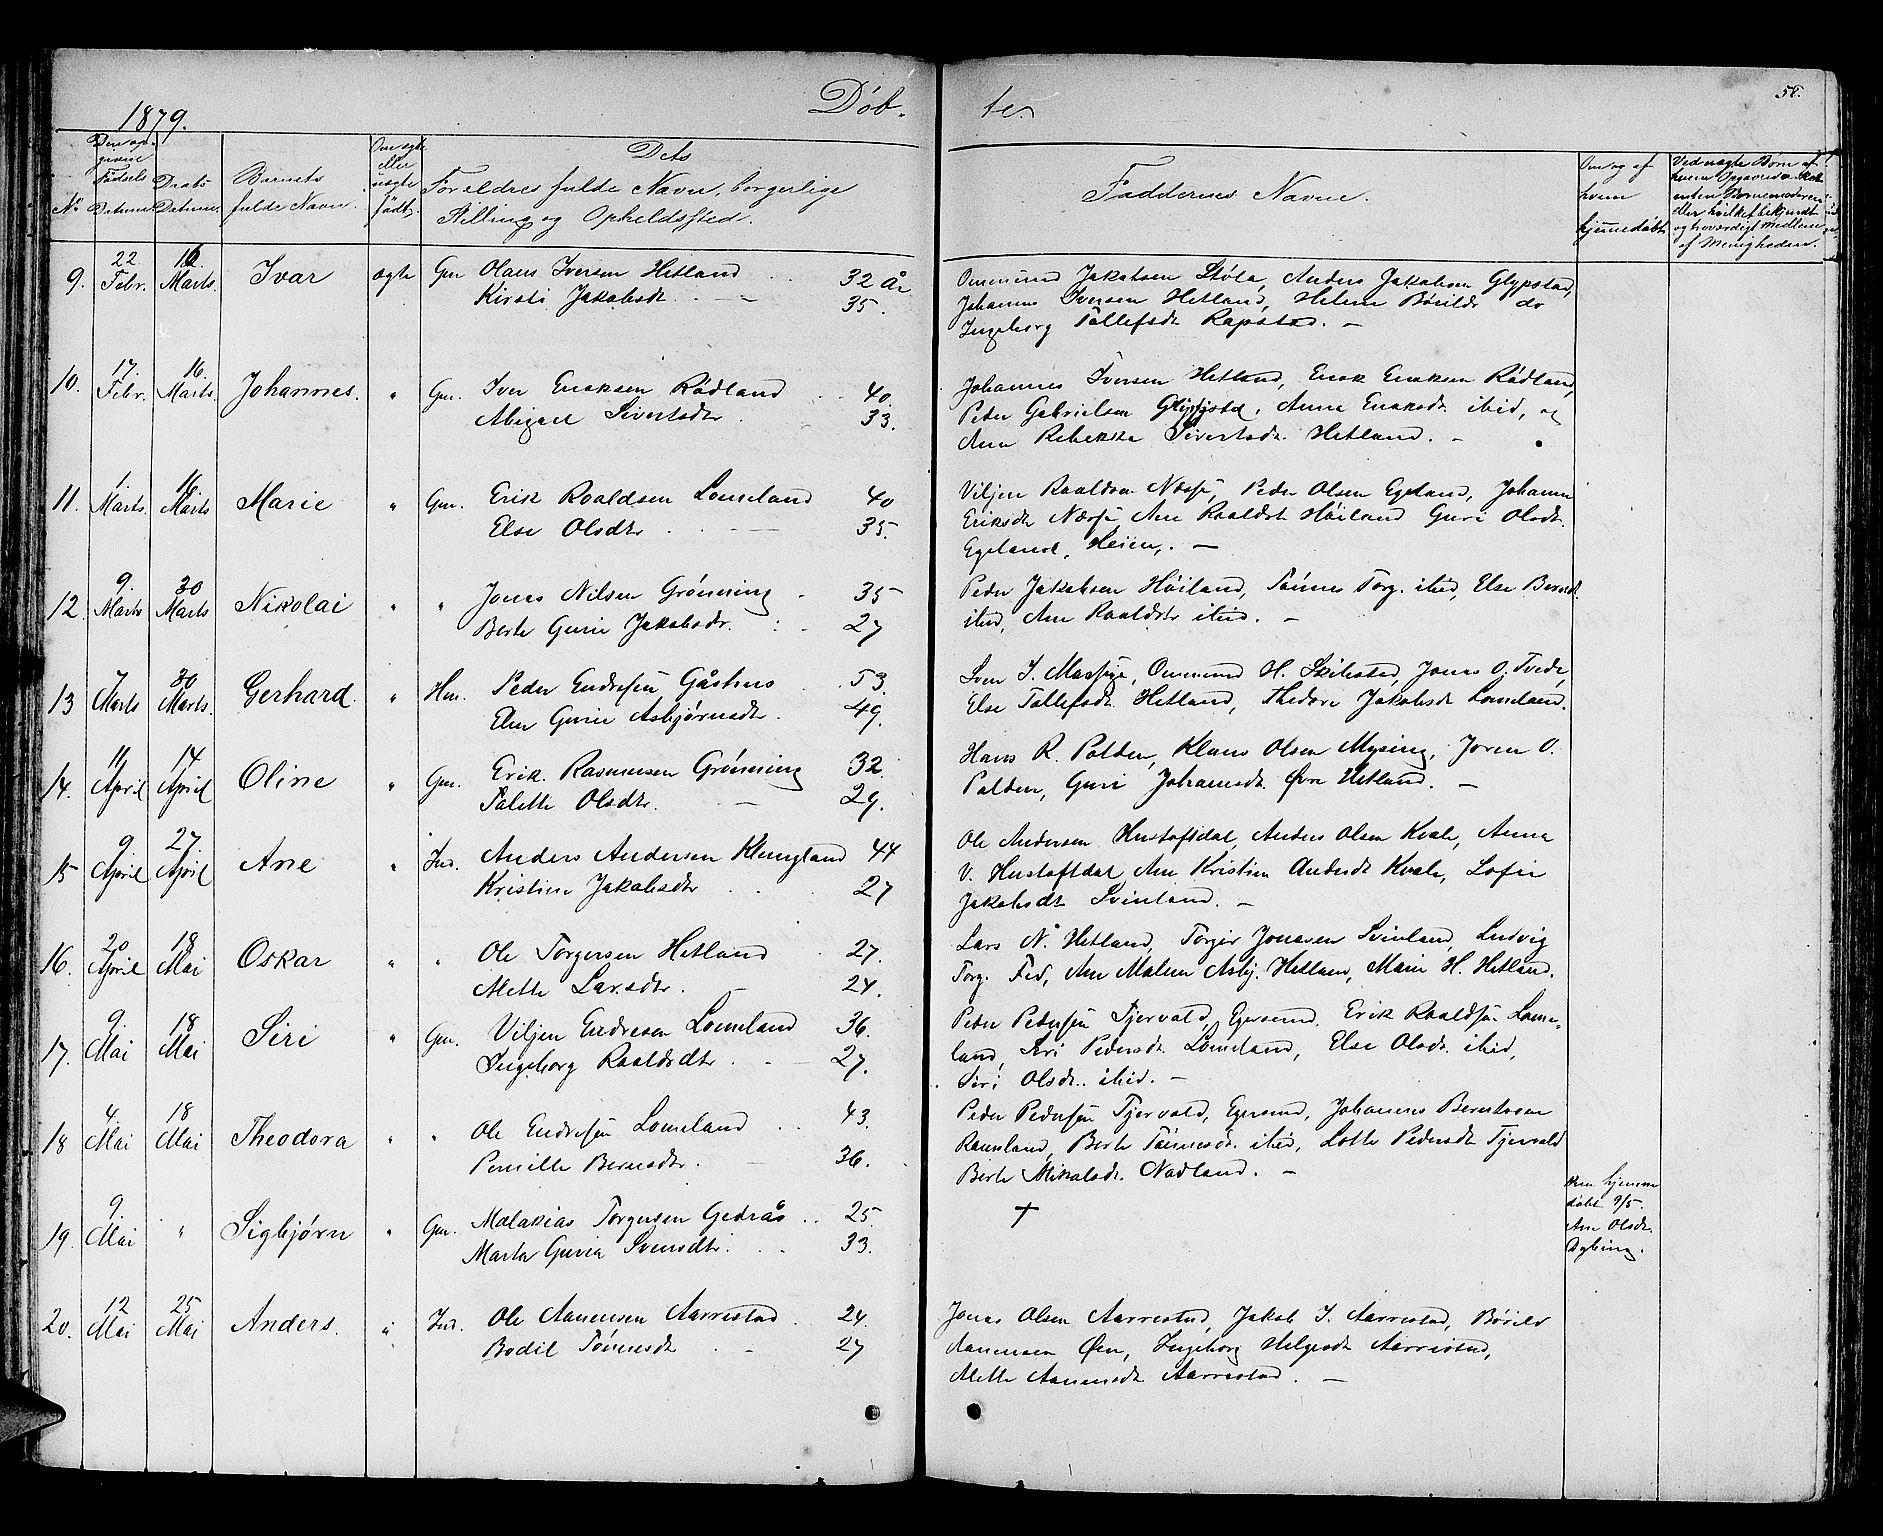 1879. Døb. te. 58.
No Den opgivne Fødsels Datum. Daabs Datum. Barnets fulde Navn. Om ægte eller uægte født. Dets Forældres fulde Navn, borgerlige Stilling og Opholdssted. Faddernes Navne. Om og af hvem hjemmedøbt
9. 22 Febr. 16 Marts. Ivar ægte Gm Olaus Iversen Hetland 32 År
Kirsti Jakobsdt. 35.
Ommund Jakobsen Støla, Anders Jakobsen Glypstad,
Johannes Iversen Hetland, Helene Bårildr do
Ingeborg Tollefsdt Rapstad. —
10. 17. Febr. 16. Marts. Johannes. " Gm. Iver Eriksen Rødland 40.
Abigael Sivertsdtr 33.
Johannes Iversen Hetland, Erik Eriksen Rødland,
Peder Gabrielsen Glypstd, Anna Eriksdt. ibid, og
Ane Rebekka Sivertsdt. Hetland. —
11. 1 Marts. 16 Marts Marie " Gm. Erik Roaldsen Lomeland 40
Else Olsdtr 35.
Viljen Roaldsen Næsse, Peder Olsen Egeland, Johanne
Eriksdt Næsse, Ane Roaldsdt Høiland Guri Olsdt.
Egeland, Heien,. —
12. 9. Marts 30 Marts Nikolai " " Jonas Nilsen Grønning 35
Berte Gurie Jakobsdr. 27
Peder Jakobsen Høiland, Tønnes Torg. ibid, Else Berntdt.
ibid, Ane Roaldsdtr ibid. —
13 7 Marts 30 Marts. Gerhard. " Hm. Peder Endresen Gåshus 53.
Elen Gurie Asbjørnsdt. 49.
Sven I. Mossige, Ommund H. Skibstad, Jonas O. Tvede,
Else Tollefsdt Hetland, Thedore Jakobsdt Lomeland.
14. 11 April 14 April Oline " Gm. Erik Rasmussen Grønning 32.
Talette Olsdtr. 29.
Hans R. Polden, Klaus Olsen Mysing, Joren O.
Polden, Guri Johannesdt. Øvre Hetland. —
15 9 April 27. April Ane " Ind. Anders Andersen Klungland 44
Kristine Jakobsdtr 27
Ole Andersen Hustoftdal, Anders Olsen Kvale, Anna
V. Hustoftdal Ane Kristine Andersdt Kvale, Sofie
Jakobsdt Svinland. —
16. 20 April 18 Mai Oskar " " Ole Torgersen Hetland 27.
Mette Larsdtr. 24.
Lars N. Hetland, Torger Jonassen Svinland, Ludvig
Torg. Fed, Ane Malene Asbj. Hetland, Marie H. Hetland.
17. 9. Mai 18 Mai Siri " Gm. Viljen Endresen Lomeland 36.
Ingeborg Roaldsdtr 27.
Peder Pedersen Tjervald, Egersund, Erik Roaldsen Lome-
land, Siri Pedersdt. Lomeland, Else Olsdt. ibid,
Siri Olsdt. ibid. —
18 4. Mai 18 Mai Theodora " " Ole Endresen Lomeland 43.
Pernille Berntsdtr. 36.
Peder Pedersen Tjervald, Egersund, Johannes Berntsen
Raunland, Berte Tønnesdt. ibid, Lotte Pedersdt Tjervald
Berte Mikalsdt. Nodland. —
19. 9. Mai " Sigbjørn " Gm. Malakias Torgersen Gedrås 25.
Marta Guria Svensdtr. 33.
†
hjemmedøbt 9/5.
Ane Olsdt.
Dybing.
20. 12 Mai 25 Mai Anders. " Ind. Ole Aanensen Aarrestad 24.
Bodil Tønnesdt 27
Jonas Olsen Aarrestad, Jakob I. Aarrestad, Børild
Aanensen Øen, Ingeborg Helgesdt Aarrestad,
Mette Aanensdt Aarrestad. —